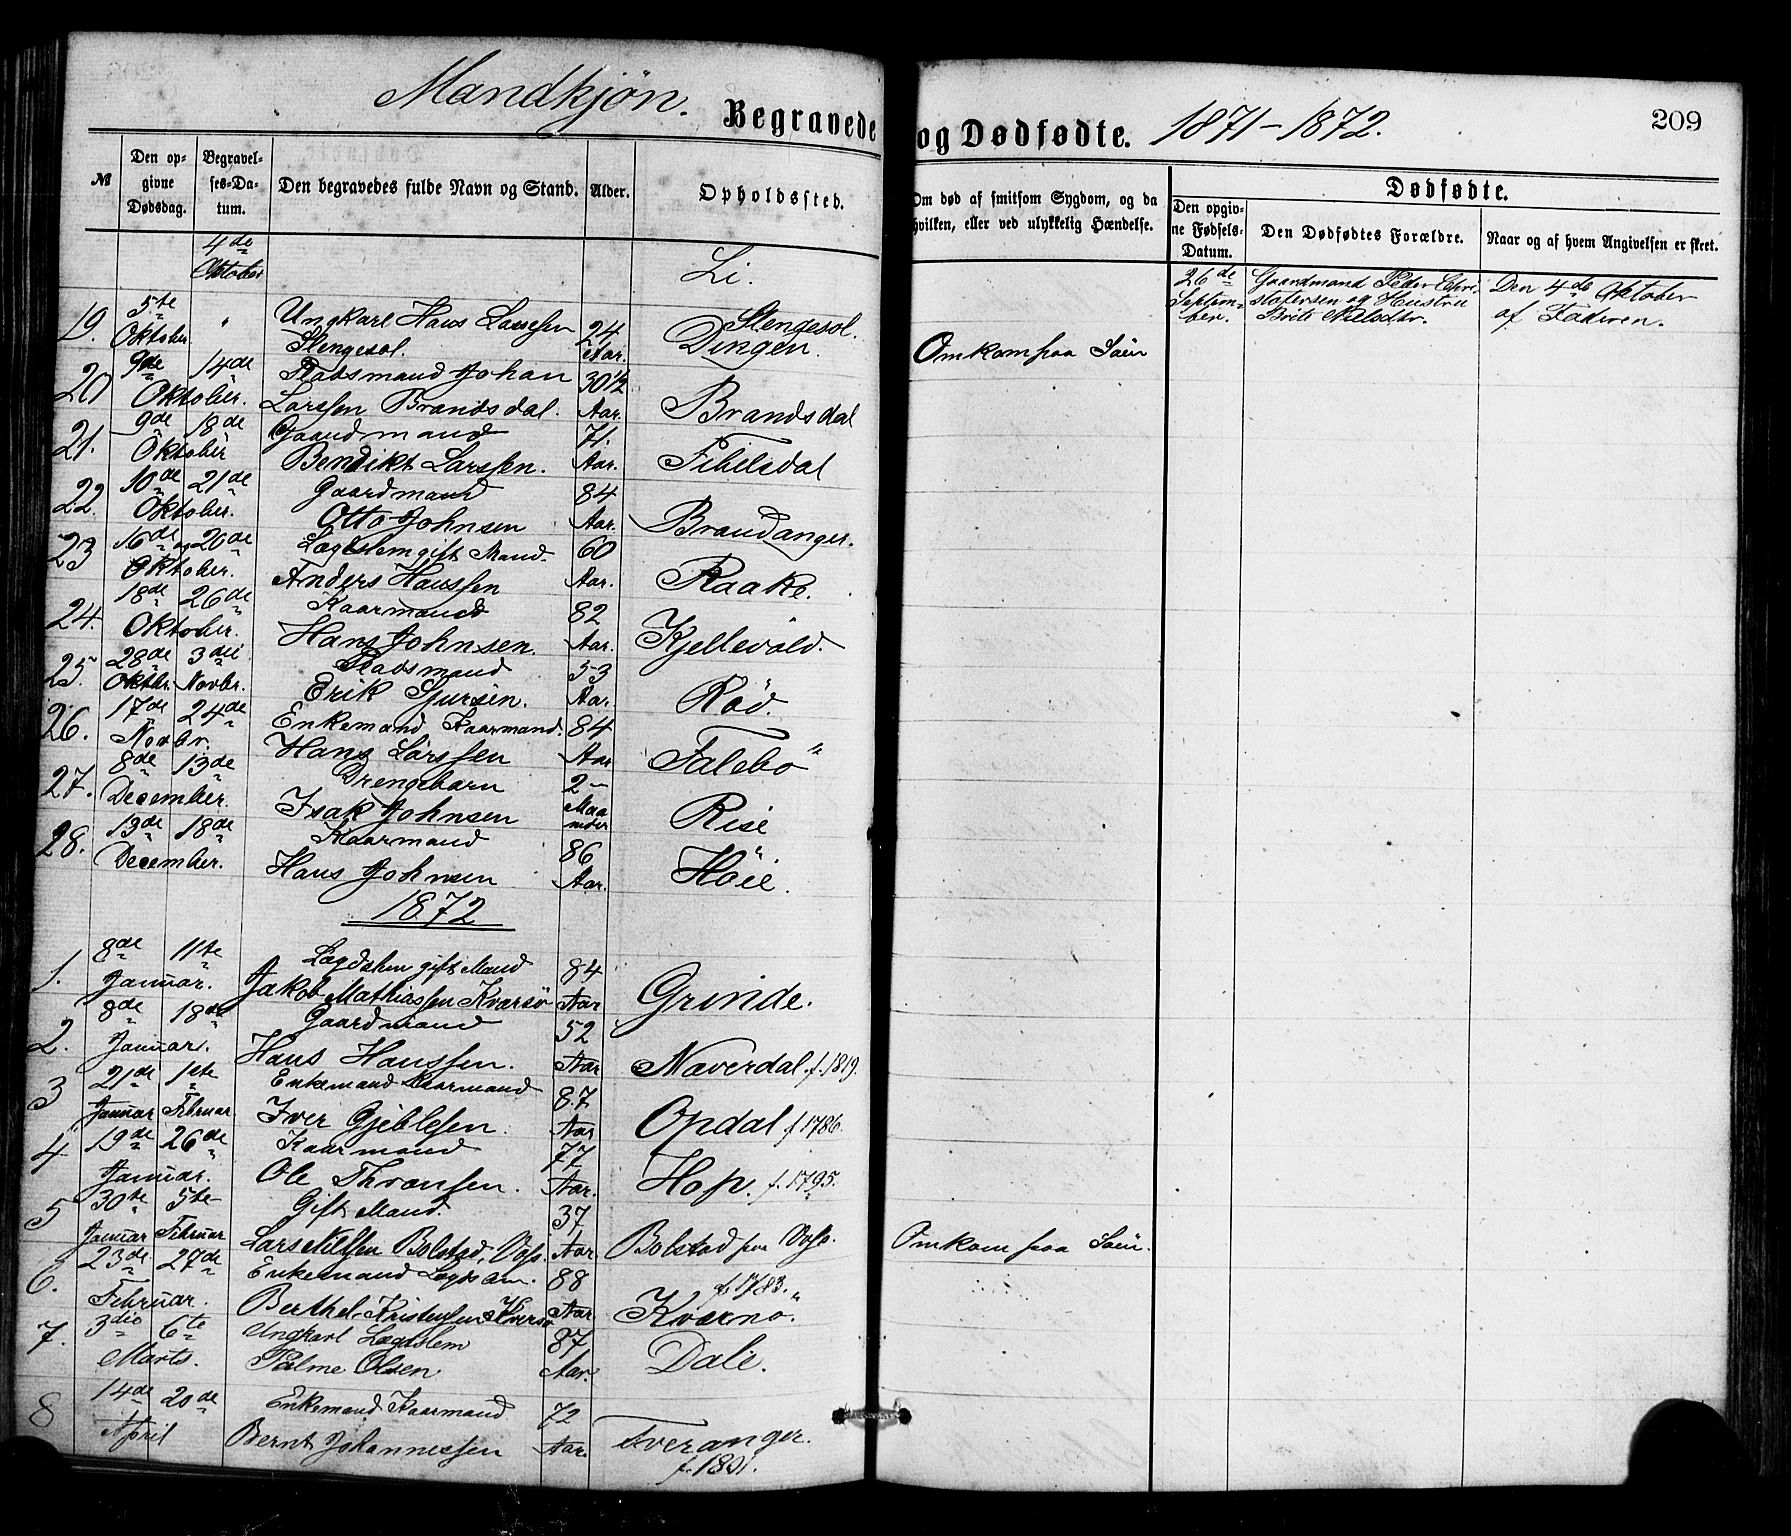 Mandkjøn. Begravede og Dødfødte. 1871-1872. 209
№
Den opgivne Dødsdag.
Begravelses-Datum.
Den begravedes fulde Navn og Stand.
Alder.
Opholdssted.
Om død af smitsom Sygdom, og da hvilken, eller ved ulykkelig Hændelse.
Dødfødte.
Den opgivne Fødsels-Datum.
Den Dødfødtes Forældre.
Naar og af hvem Angivelsen er skeet.
4de Oktober Li.
26de September. Gaardmand Peder Christofersen og Hustru Brite Nielsdtr. Den 4de Oktober af Faderen.
19. 5te Oktober " Ungkarl Hans Lassesen 24 Aar. Stengesol. Dingen.
Stengesol. Omkom paa Søen
20 9de 14de Oktober. Pladsmand Johan Larssen Brandsdal. 30½ Aar. Brandsdal
21. 9de 18de Oktober Gaardmand Bendikt Larssen. 71. Aar.
22. 10de 21de Oktober. Gaardmand Otto Johnsen 84 Aar. Brandanger.
23 16de og 20de Oktober. Lægdslem gift Mand. Anders Hanssen 60 Aar. Raake.
24. 18de 26de Oktober. Kaarmand Hans Johnsen. 82 Aar. Kjellevold.
25. 28de Oktbr. 3die Novbr. Pladsmand Erik Sjursen. 53 Aar. Rød.
26. 17de 24de Novbr. Enkemand Kaarmand. Hans Larssen 84 Aar Falebø
27. 8de 13de December. Drengebarn Isak Johnsen 2 Maaneder Rise
28. 13de 18de December. Kaarmand Hans Johnsen 86 Aar. Høie.
1872
1. 8de 11te Januar. Lægdslem gift Mand Jakob Mathiassen Kversø 84 Aar Grinde.
2. 8de 18de Januar. Gaardmand Hans Hanssen. 52 Aar Næverdal f. 1819.
3 21de Januar 1ste Februar Enkemand Kaarmand Iver Gjeblesen. 87 Aar Opdal f 1786.
4 19de 26de Januar. Kaarmand Ole Thronsen. 77 Aar. Hop. f. 1795.
5 30te Januar 5te Februar Gift Mand. Lars Nielsen Bolstad, Vos. 37 Aar Bolstad paa Vos. Omkom paa Søen.
6. 23de 27de Februar. Enkemand Lægdslem. Berthel Kristensen Kversø 88 Aar f. 1783. Kversnø.
7. 3die 6te Marts. Ungkarl Lægdslem Palme Olsen 87 Aar. Dale.
8 14de 20de April Enkemand Kaarmand Bernt Johannessen 72 Aar. Tveranger. f. 1801.